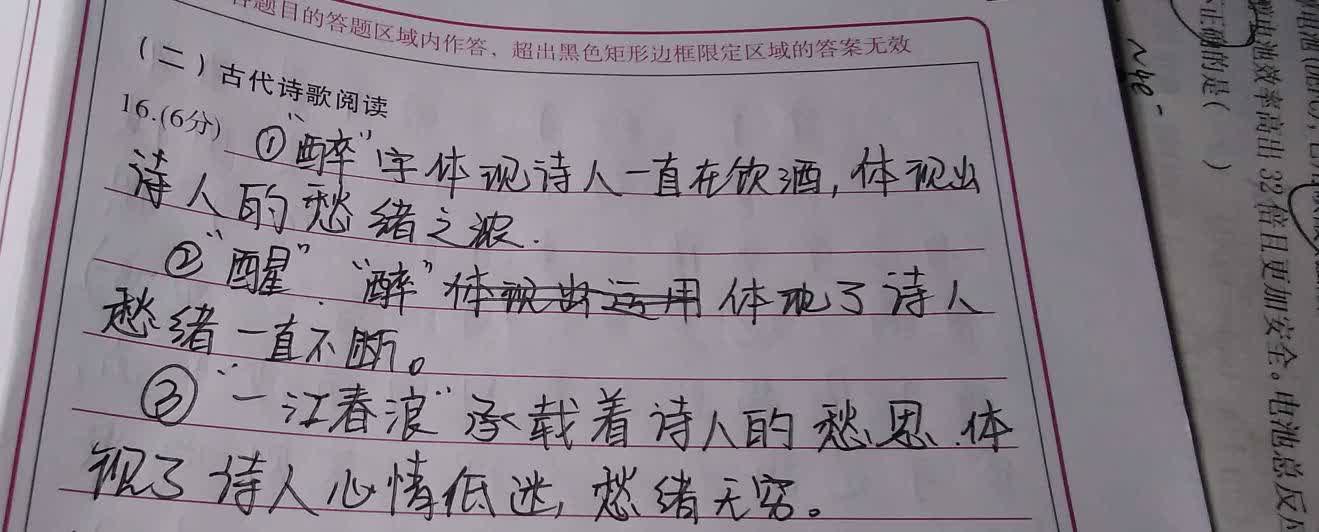 各题目的答题区域内作答，超出黑色矩形边框限定区域的答案无效
（二）古代诗歌阅读
16.(6分) ①“醉”字体现诗人一直在饮酒，体现出
诗人的愁绪之浓.
②“醒”.“醉”体现出运用体现了诗人
愁绪一直不断。
③“一江春浪”承载着诗人的愁思.体
现了诗人心情低迷，愁绪无穷。
正确的是( )
电池效率高出32倍且更加安全。电池总反